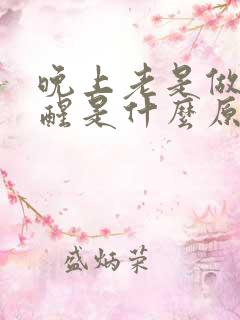 晚上老是做
醒是什麼原
盛炳荣